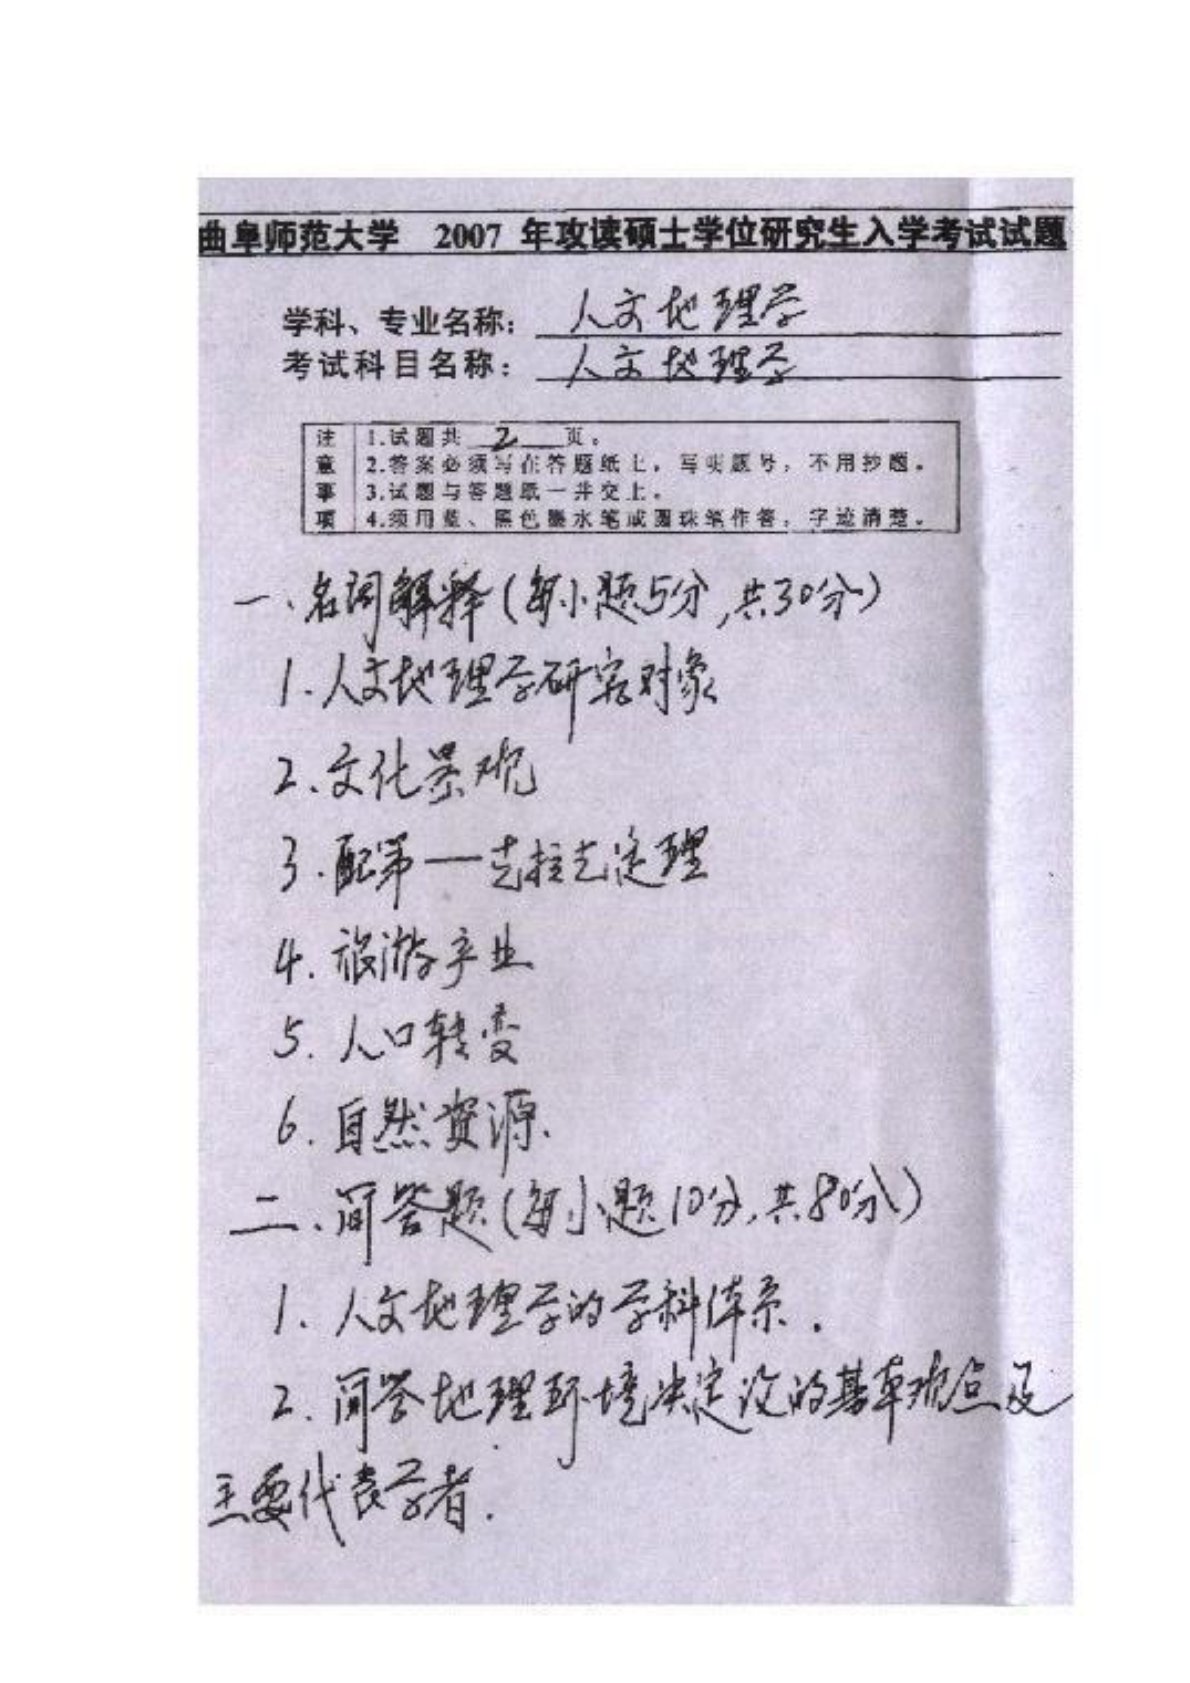 曲阜师范大学 2007 年攻读硕士学位研究生入学考试试题
学科、专业名称：人文地理学
考试科目名称：人文地理学
注意事项
1.试题共 2 页。
2.答案必须写在答题纸上，写明题号，不用抄题。
3.试题与答题纸一并交上。
4.须用蓝、黑色墨水笔或圆珠笔作答，字迹清楚。
一、名词解释（每小题5分，共30分）
1.人文地理学研究对象
2.文化景观
3.配第—克拉克定理
4.旅游产业
5.人口转变
6.自然资源.
二、简答题（每小题10分，共80分）
1.人文地理学的学科体系.
2.简答地理环境决定论的基本观点及
主要代表学者.